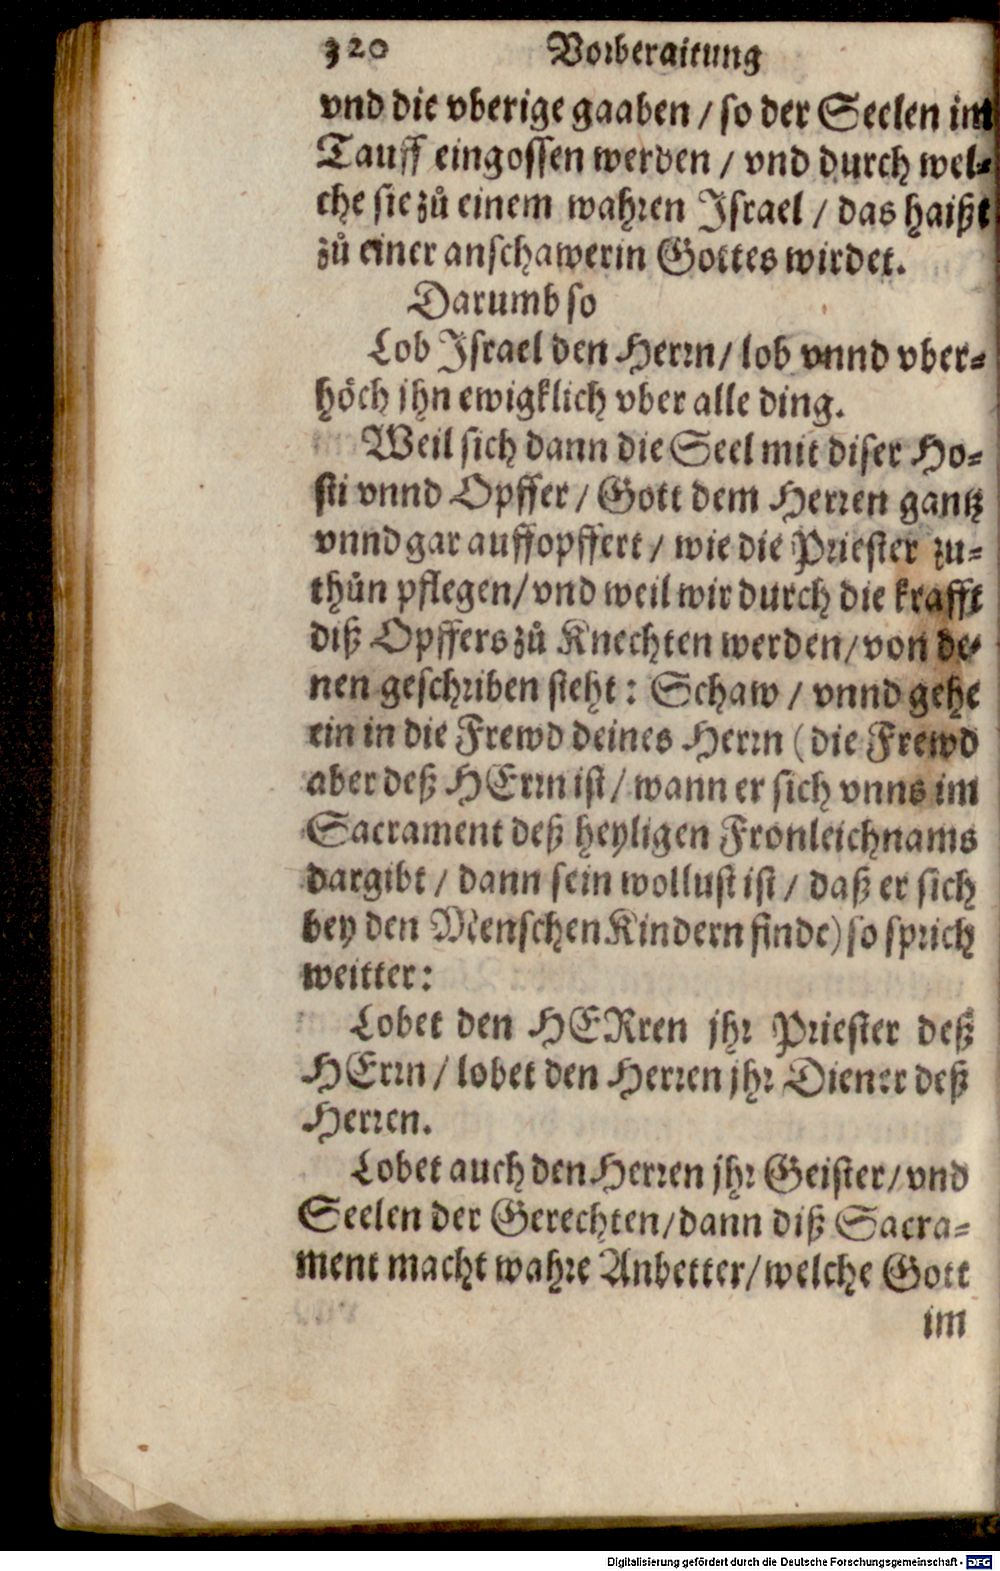 320 Vorberaitung
vnd die vberige gaaben / so der Seelen im
Tauff eingossen werden / vnd durch wel-
che sie zů einem wahren Israel / das haißt
zů einer anschawerin Gottes wirdet.
Darumb so
Lob Israel den Herrn / lob vnnd vber-
höch jhn ewigklich vber alle ding.
Weil sich dann die Seel mit diser Ho-
sti vnnd Opffer / Gott dem Herren gantz
vnnd gar auffopffert / wie die Priester zu-
thůn pflegen / vnd weil wir durch die krafft
diß Opffers zů Knechten werden / von de-
nen geschriben steht: Schaw / vnnd gehe
ein in die Frewd deines Herrn (die Frewd
aber deß HErrn ist / wann er sich vnns im
Sacrament deß heyligen Fronleichnams
dargibt / dann sein wollust ist / daß er sich
bey den Menschen Kindern finde) so sprich
weitter:
Lobet den HERren jhr Priester deß
HErrn / lobet den Herren jhr Diener deß
Herren.
Lobet auch den Herren jhr Geister / vnd
Seelen der Gerechten / dann diß Sacra-
ment macht wahre Anbetter / welche Gott
im
Digitalisierung gefördert durch die Deutsche Forschungsgemeinschaft - DFG